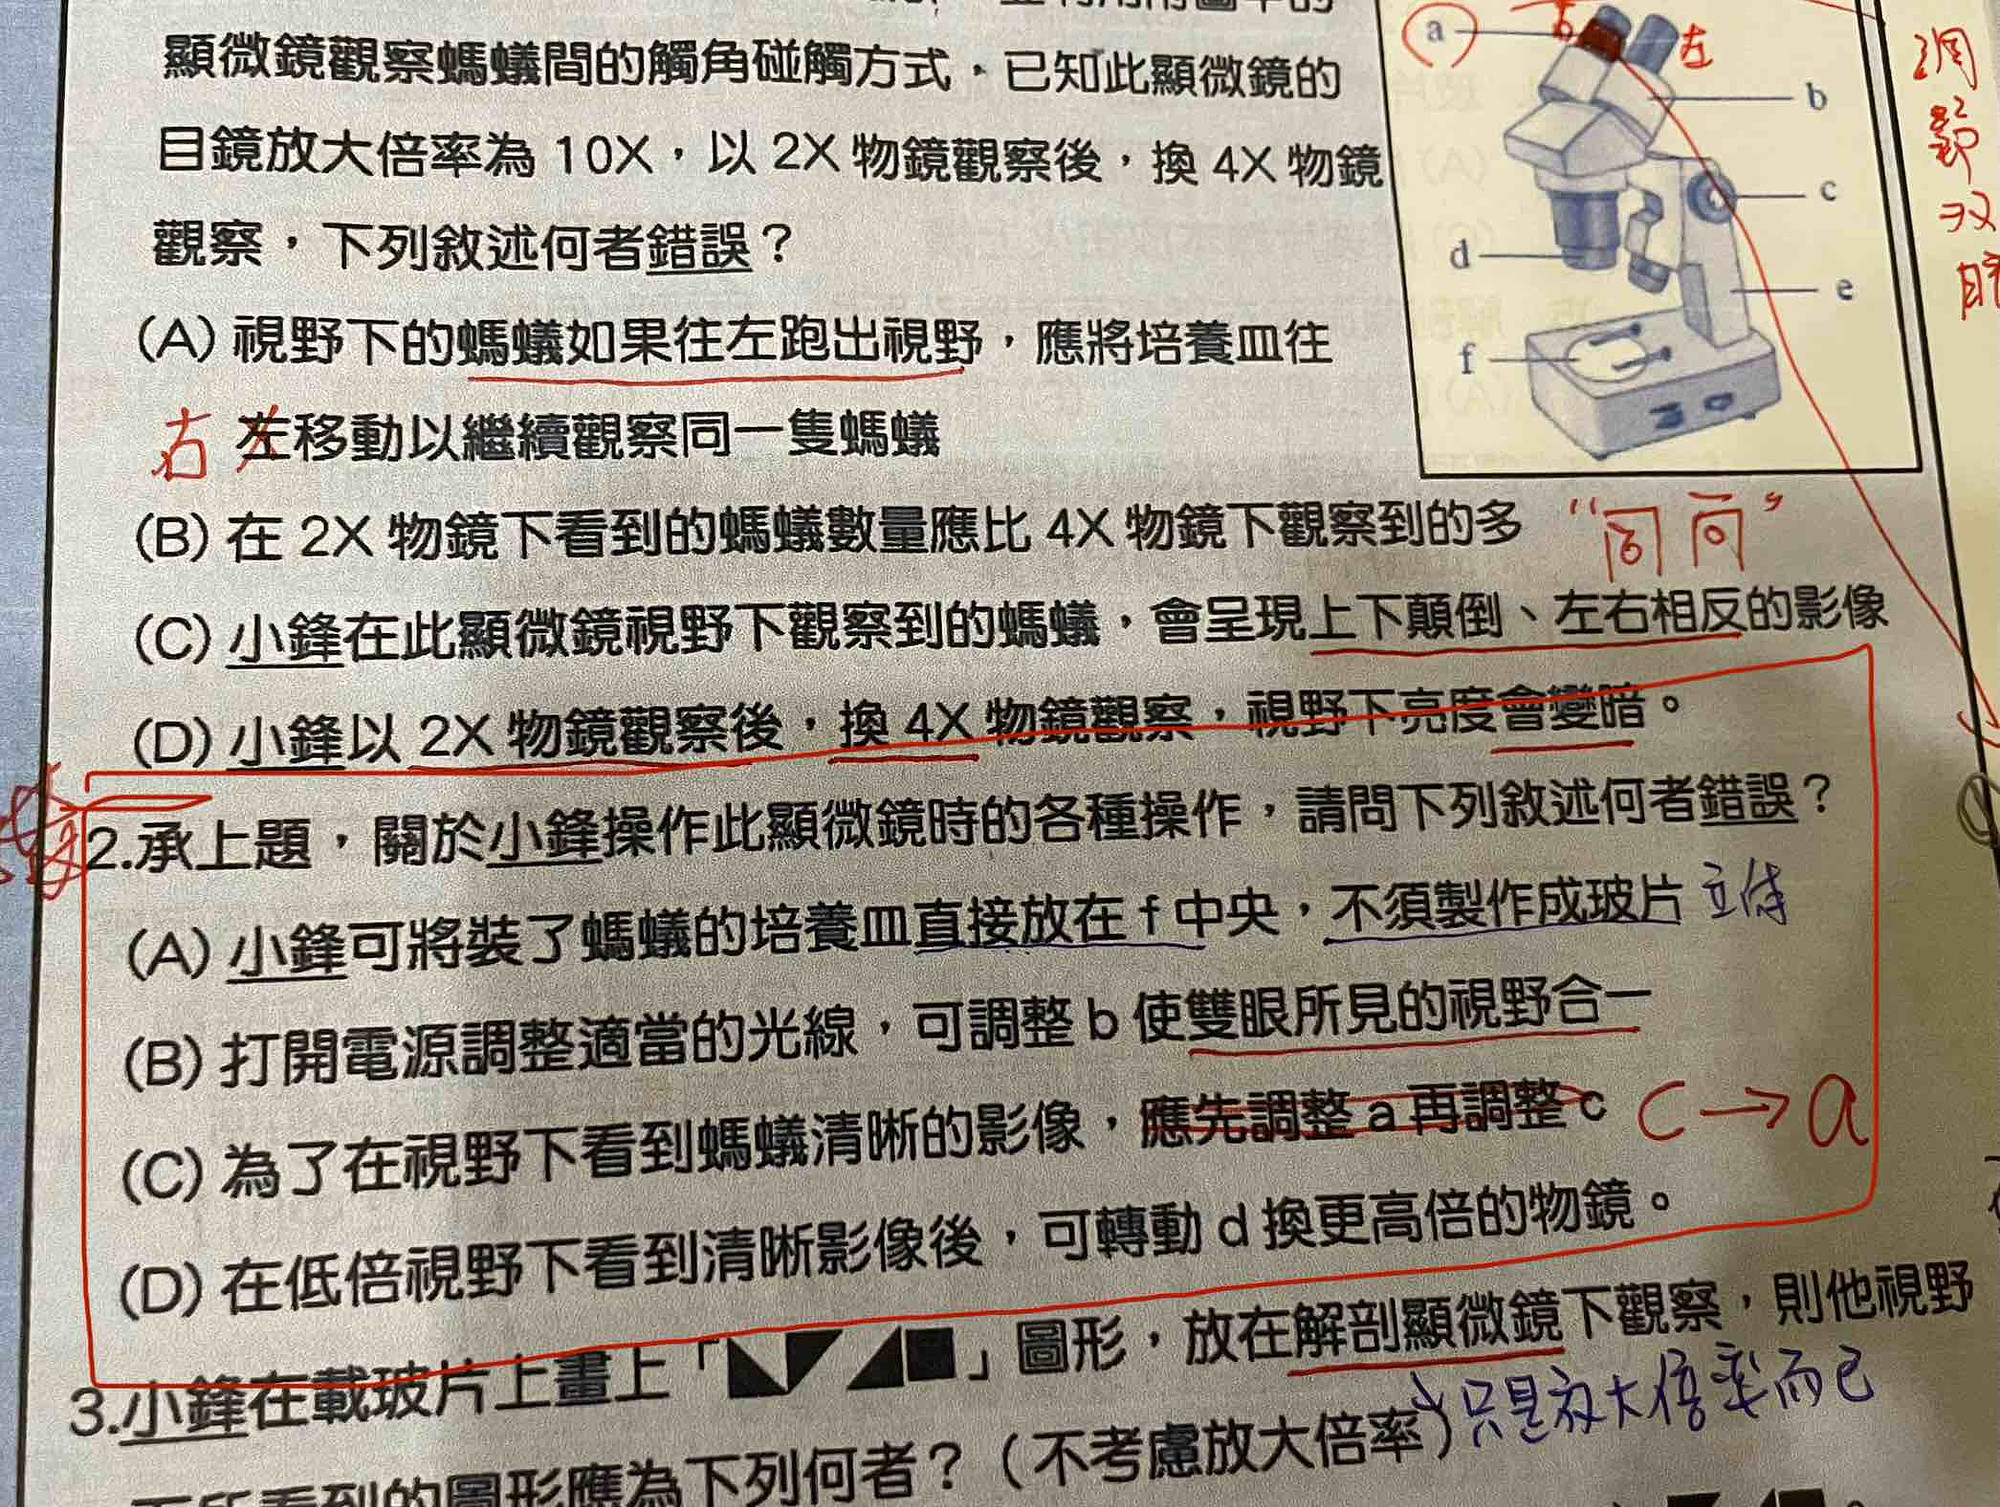 顯微鏡觀察螞蟻間的觸角碰觸方式，已知此顯微鏡的
目鏡放大倍率為 10X，以 2X 物鏡觀察後，換 4X 物鏡
觀察，下列敘述何者錯誤？
(A) 視野下的螞蟻如果往左跑出視野，應將培養皿往
右 左移動以繼續觀察同一隻螞蟻
(B) 在 2X 物鏡下看到的螞蟻數量應比 4X 物鏡下觀察到的多
(C) 小鋒在此顯微鏡視野下觀察到的螞蟻，會呈現上下顛倒、左右相反的影像
(D) 小鋒以 2X 物鏡觀察後，換 4X 物鏡觀察，視野下亮度會變暗。
a
右
左
b
c
d
e
f
調節双眼
2.承上題，關於小鋒操作此顯微鏡時的各種操作，請問下列敘述何者錯誤？
(A) 小鋒可將裝了螞蟻的培養皿直接放在 f 中央，不須製作成玻片 立体
(B) 打開電源調整適當的光線，可調整 b 使雙眼所見的視野合一
(C) 為了在視野下看到螞蟻清晰的影像，應先調整 a 再調整 c C→a
(D) 在低倍視野下看到清晰影像後，可轉動 d 換更高倍的物鏡。
3.小鋒在載玻片上畫上「◣◤◢■」圖形，放在解剖顯微鏡下觀察，則他視野
下所看到的圖形應為下列何者？（不考慮放大倍率）只是放大倍率而已